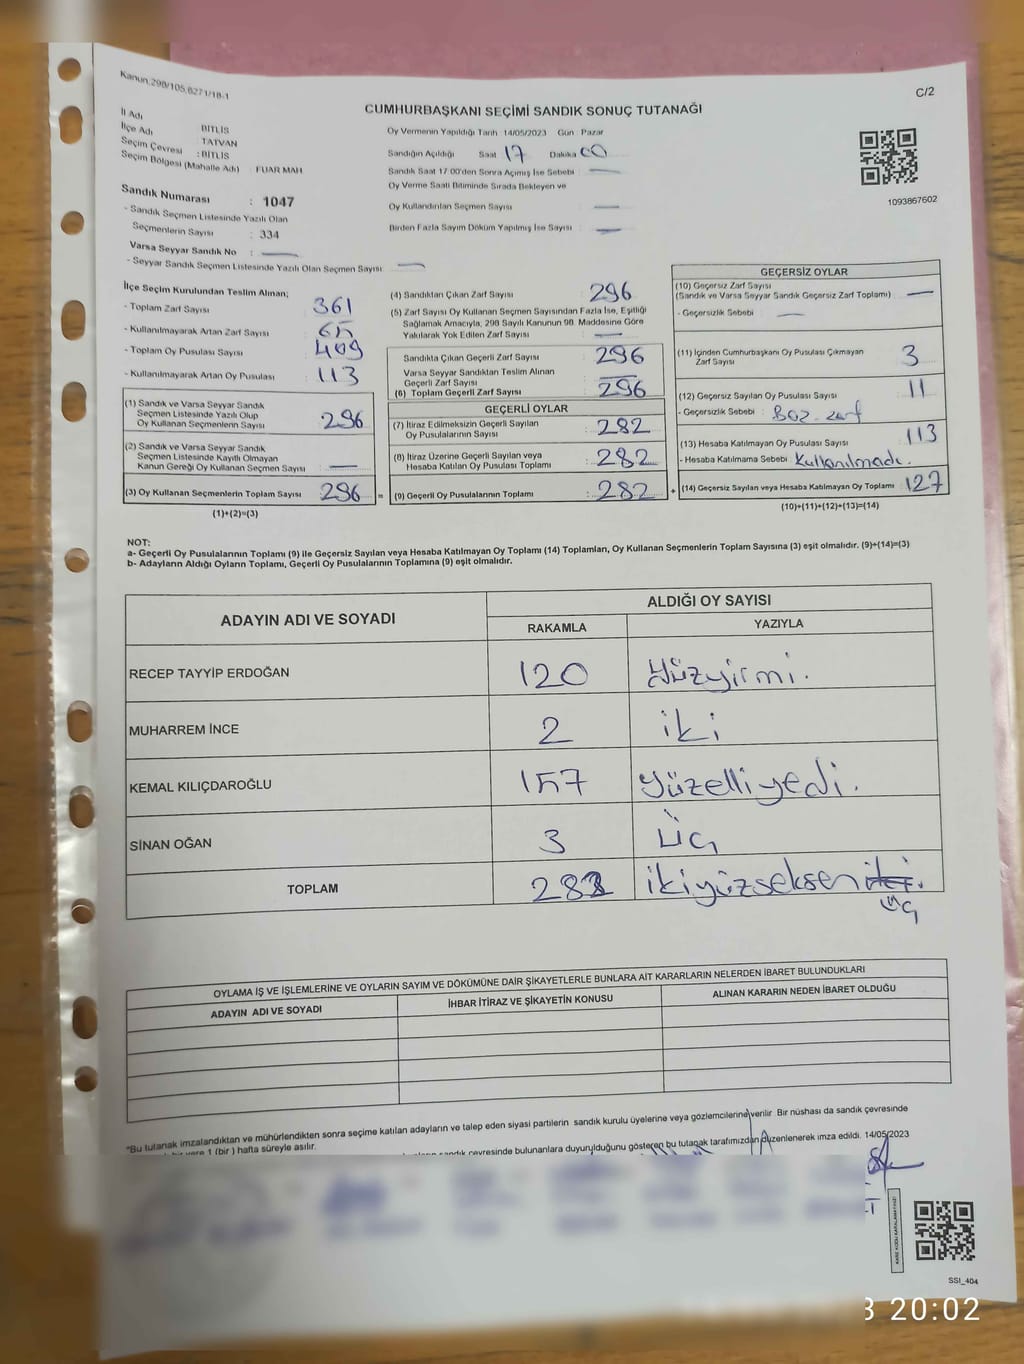 Kanun.298/105,6271/18-1
C/2
CUMHURBAŞKANI SEÇİMİ SANDIK SONUÇ TUTANAĞI
İl Adı : BİTLİS
İlçe Adı : TATVAN
Seçim Çevresi : BİTLİS
Seçim Bölgesi (Mahalle Adı) : FUAR MAH
Sandık Numarası : 1047
- Sandık Seçmen Listesinde Yazılı Olan
Seçmenlerin Sayısı : 334
Varsa Seyyar Sandık No : —
- Seyyar Sandık Seçmen Listesinde Yazılı Olan Seçmen Sayısı —
Oy Vermenin Yapıldığı Tarih 14/05/2023 Gün Pazar
Sandığın Açıldığı Saat 17 Dakika 00
Sandık Saat 17 00'den Sonra Açımış İse Sebebi : —
Oy Verme Saati Bitiminde Sırada Bekleyen ve
Oy Kullandırılan Seçmen Sayısı —
Birden Fazla Sayım Döküm Yapılmış İse Sayısı : —
1093867602
İlçe Seçim Kurulundan Teslim Alınan;
- Toplam Zarf Sayısı 361
- Kullanılmayarak Artan Zarf Sayısı 65
- Toplam Oy Pusulası Sayısı 409
- Kullanılmayarak Artan Oy Pusulası 113
(1) Sandık ve Varsa Seyyar Sandık
Seçmen Listesinde Yazılı Olup
Oy Kullanan Seçmenlerin Sayısı : 296
(2) Sandık ve Varsa Seyyar Sandık
Seçmen Listesinde Kayıtlı Olmayan
Kanun Gereği Oy Kullanan Seçmen Sayısı —
(3) Oy Kullanan Seçmenlerin Toplam Sayısı 296 =
(1)+(2)=(3)
(4) Sandıktan Çıkan Zarf Sayısı 296
(5) Zarf Sayısı Oy Kullanan Seçmen Sayısından Fazla İse, Eşitliği
Sağlamak Amacıyla, 298 Sayılı Kanunun 98. Maddesine Göre
Yakılarak Yok Edilen Zarf Sayısı : —
Sandıkta Çıkan Geçerli Zarf Sayısı 296
Varsa Seyyar Sandıktan Teslim Alınan
Geçerli Zarf Sayısı —
(6) Toplam Geçerli Zarf Sayısı 296
GEÇERLİ OYLAR
(7) İtiraz Edilmeksizin Geçerli Sayılan
Oy Pusulalarının Sayısı : 282
(8) İtiraz Üzerine Geçerli Sayılan veya
Hesaba Katılan Oy Pusulası Toplamı : 282
(9) Geçerli Oy Pusulalarının Toplamı : 282 +
GEÇERSİZ OYLAR
(10) Geçersiz Zarf Sayısı
(Sandık ve Varsa Seyyar Sandık Geçersiz Zarf Toplamı) —
- Geçersizlik Sebebi : —
(11) İçinden Cumhurbaşkanı Oy Pusulası Çıkmayan
Zarf Sayısı 3
(12) Geçersiz Sayılan Oy Pusulası Sayısı : 11
- Geçersizlik Sebebi : Boz-zarf
(13) Hesaba Katılmayan Oy Pusulası Sayısı : 113
- Hesaba Katılmama Sebebi : Kullanılmadı.
(14) Geçersiz Sayılan veya Hesaba Katılmayan Oy Toplamı : 127
(10)+(11)+(12)+(13)=(14)
NOT:
a- Geçerli Oy Pusulalarının Toplamı (9) ile Geçersiz Sayılan veya Hesaba Katılmayan Oy Toplamı (14) Toplamları, Oy Kullanan Seçmenlerin Toplam Sayısına (3) eşit olmalıdır. (9)+(14)=(3)
b- Adayların Aldığı Oyların Toplamı, Geçerli Oy Pusulalarının Toplamına (9) eşit olmalıdır.
ADAYIN ADI VE SOYADI
ALDIĞI OY SAYISI
RAKAMLA YAZIYLA
RECEP TAYYİP ERDOĞAN 120 Yüzyirmi.
MUHARREM İNCE 2 iki
KEMAL KILIÇDAROĞLU 157 Yüzelliyedi.
SİNAN OĞAN 3 Üç
TOPLAM 282 ikiyüzseksen iki.
üç
OYLAMA İŞ VE İŞLEMLERİNE VE OYLARIN SAYIM VE DÖKÜMÜNE DAİR ŞİKAYETLERLE BUNLARA AİT KARARLARIN NELERDEN İBARET BULUNDUKLARI
ADAYIN ADI VE SOYADI İHBAR İTİRAZ VE ŞİKAYETİN KONUSU ALINAN KARARIN NEDEN İBARET OLDUĞU
"Bu tutanak imzalandıktan ve mühürlendikten sonra seçime katılan adayların ve talep eden siyasi partilerin sandık kurulu üyelerine veya gözlemcilerine verilir Bir nüshası da sandık çevresinde
yere 1 (bir) hafta süreyle asılır.
sandık çevresinde bulunanlara duyurulduğunu gösteren bu tutanak tarafımızdan düzenlenerek imza edildi. 14/05/2023
SSI_404
20:02